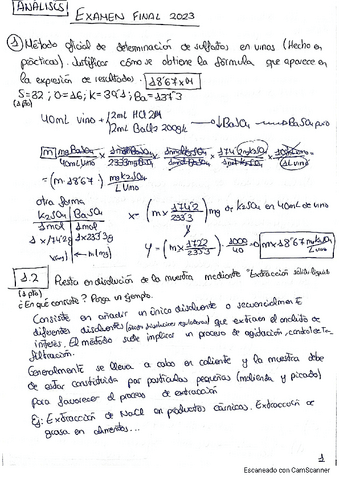 ANALISIS
EXAMEN FINAL 2023
① Método oficial de determinación de sulfatos en vinos (Hecho en
prácticas). Justificar cómo se obtiene la fórmula que aparece en
la expresión de resultados. 18'67 x m
S=32; O=16; K=39'1; Ba=137'3
(1 pto)
40mL vino + 2mL HCl 2M → ↓BaSO4 → BaSO4 puro
2mL BaCl2 200g/L
m mgBaSO4 / 40mL vino x
= (m · 18'67) mg K2SO4 / L Vino
otra forma
K2SO4 | BaSO4
1mol 1mol
1 x 174'2g 1x233'3g
x (mg) ← m (mg)
x = (m x 174'2 / 233'3) mg de K2SO4 en 40mL de vino
y = (m x 174'2 / 233'3) · 1000 / 40 = m x 18'67 mg K2SO4 / L vino
1.2 Puesta en disolución de la muestra mediante "Extracción sólido líquido
(1 pto)
¿En qué consiste? Ponga un ejemplo.
Consiste en añadir un único disolvente o secuencialmente
diferentes disolventes que extraen el analito de
interés. El método suele implicar un proceso de agitación,
filtración.
Generalmente se lleva a cabo en caliente y la muestra debe
de estar constituida por partículas pequeñas (molienda y picado)
para favorecer el proceso de extracción
Ej: Extracción de NaCl en productos cárnicos. Extracción de
grasa en alimentos...
1
Escaneado con CamScanner